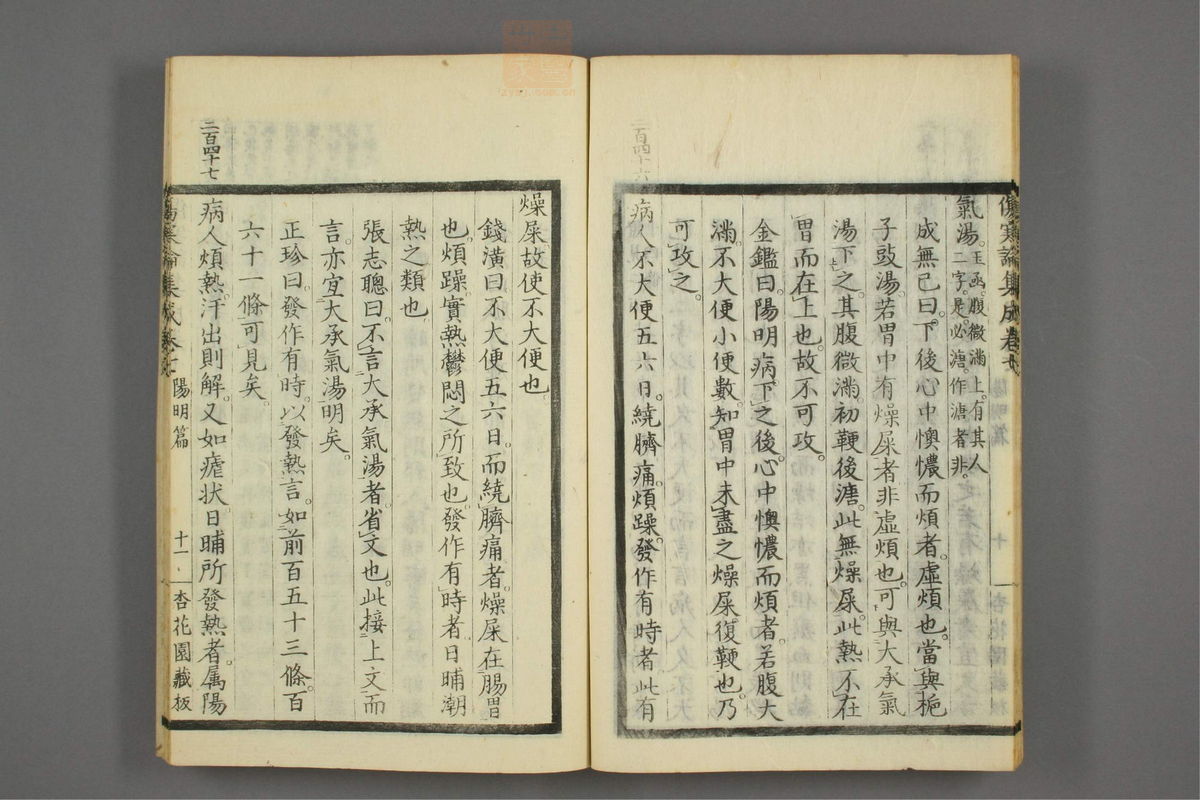 傷寒論集成卷七
氣湯。玉函。腹微滿上。有其人
二字。是。必溏。作溏者非。
成無己曰。下後心中懊憹而煩者。虛煩也。當與梔
子豉湯。若胃中有燥屎者非虛煩也。可與大承氣
湯下之。其腹微滿初鞕後溏。此無燥屎。此熱不在
胃而在上也。故不可攻。
金鑑曰。陽明病。下之後。心中懊憹而煩者。若腹大
滿。不大便。小便數。知胃中未盡之燥屎復鞕也。乃
可攻之。
二百四十六
病人不大便五六日。繞臍痛。煩躁。發作有時者。此有
燥屎。故使不大便也。
錢潢曰。不大便五六日。而繞臍痛者。燥屎在腸胃
也。煩躁。實熱鬱悶之所致也。發作有時者。日晡潮
熱之類也。
張志聰曰。不言大承氣湯者。省文也。此接上文而
言。亦宜大承氣湯明矣。
正珍曰。發作有時。以發熱言。如前百五十三條。百
六十一條可見矣。
二百四十七
病人煩熱。汗出則解。又如瘧狀。日晡所發熱者。屬陽
傷寒論集成卷七
陽明篇
十一
杏花園藏板